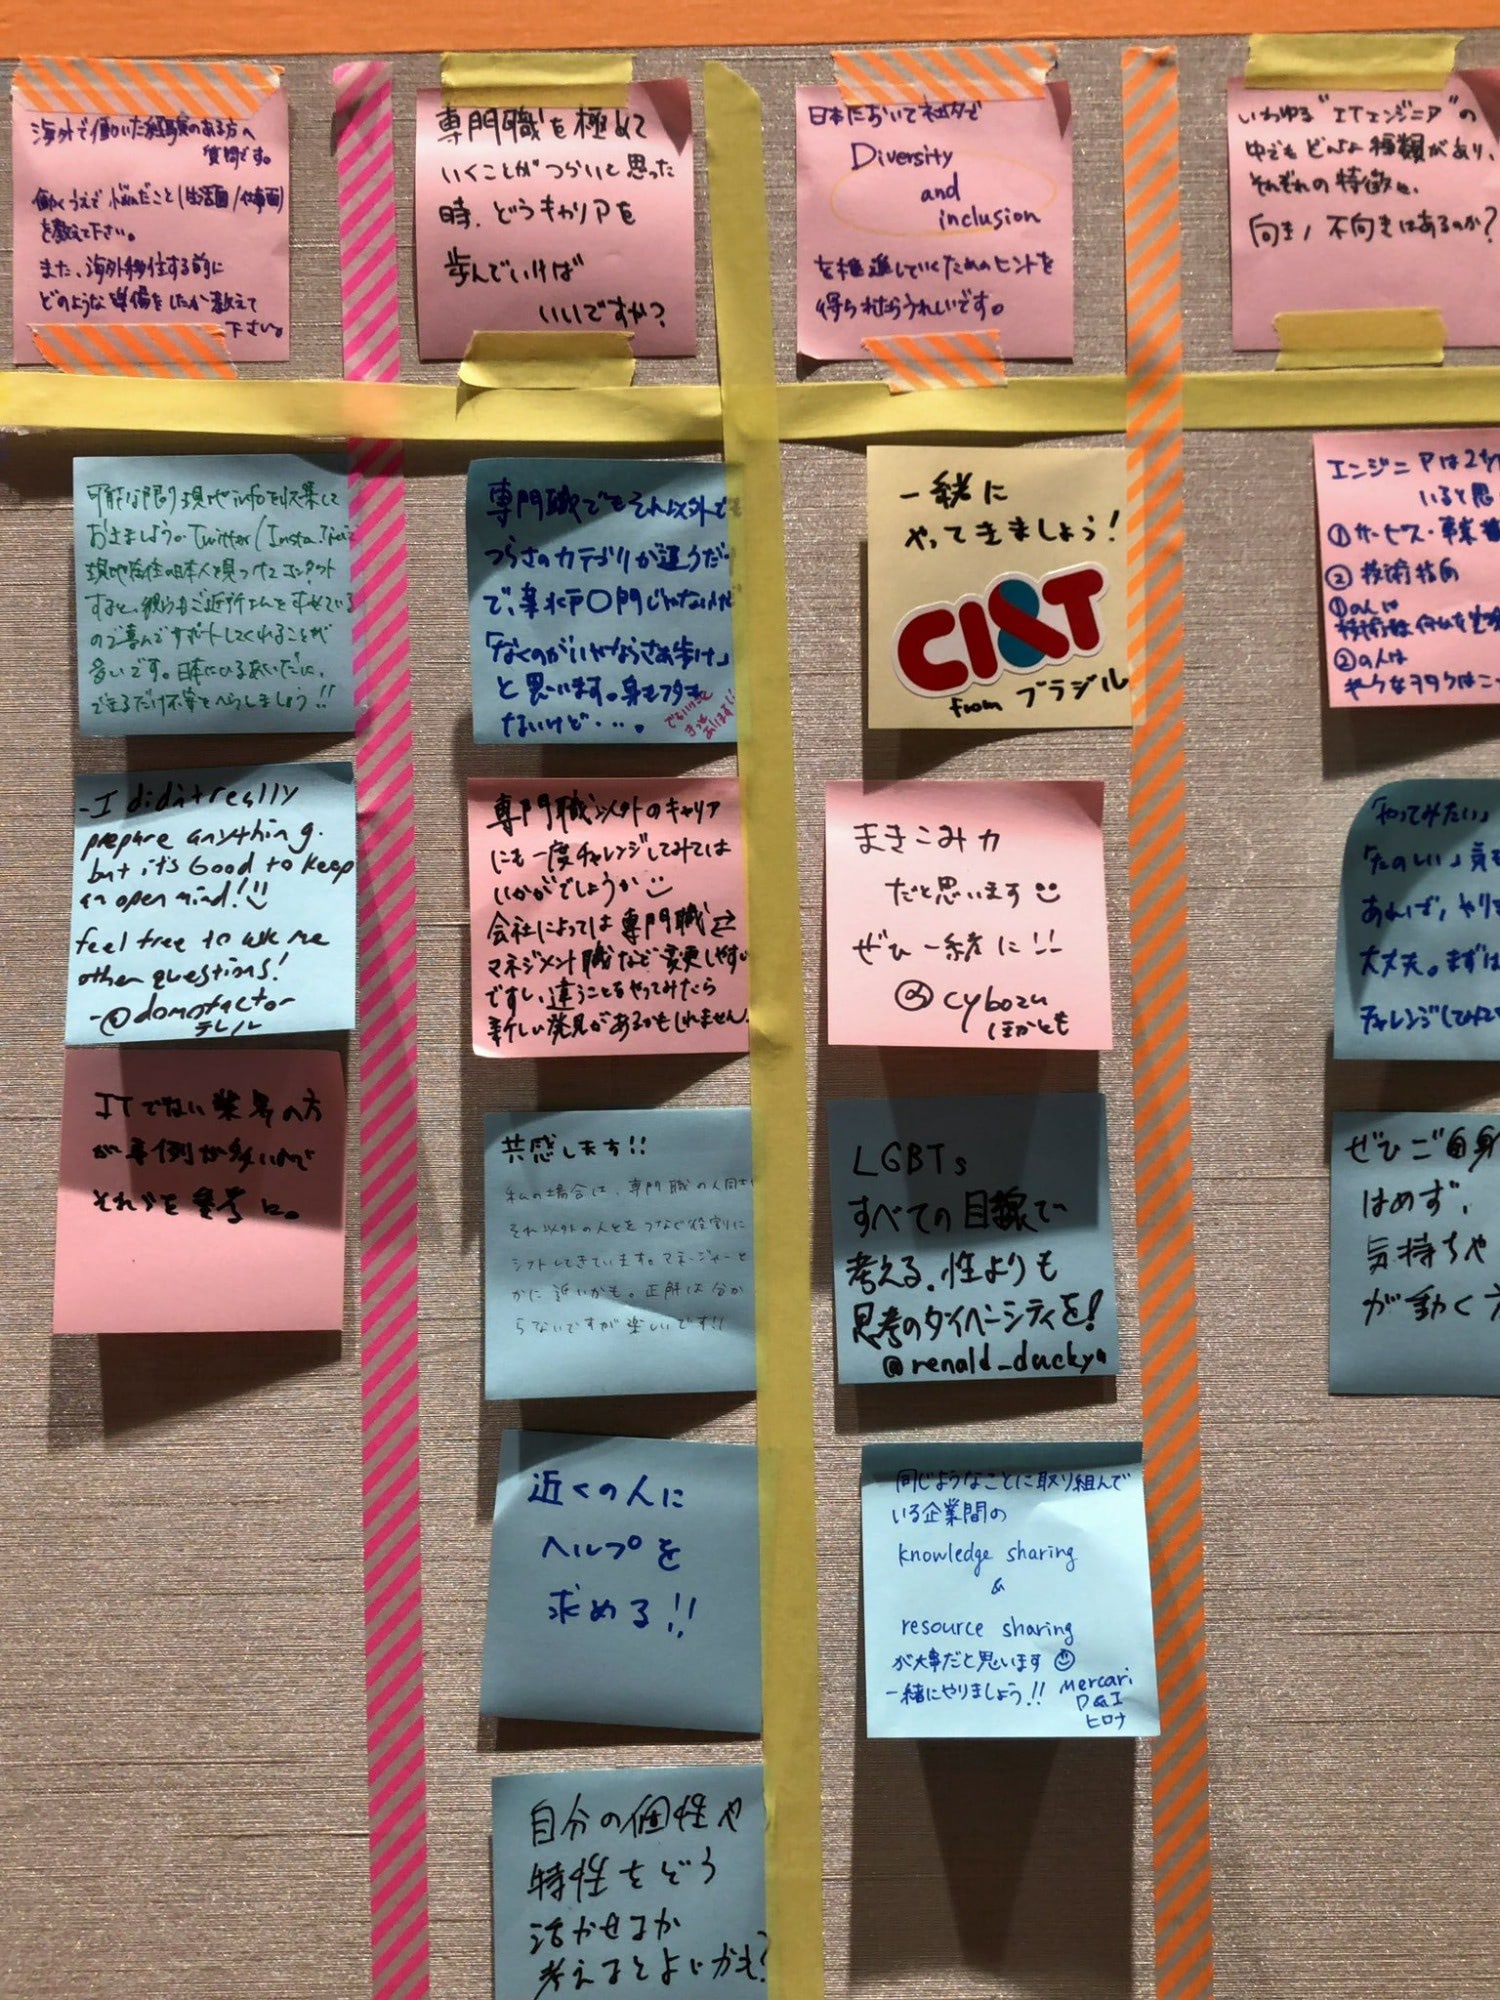 海外で働いた経験のある方へ
質問です。
働くうえで悩んだこと(生活面/仕事面)
を教えて下さい。
また、海外移住する前に
どのような準備をしたか教えて
下さい。
可能な限り現地infoを収集して
おきましょう。Twitter/Insta
現地在住の日本人を見つけてコンタクト
すると、彼らも
ので喜んでサポートしてくれることが
多いです。日本にいるあいだに、
できるだけ不安をへらしましょう!!
-I didn't really
prepare anything.
but it's Good to keep
an open mind!
feel free to ask me
other questions!
-@domofactor
ITでない業界の方
が事例が多いので
それらを参考に。
専門職を極めて
いくことがつらいと思った
時、どうキャリアを
歩んでいけば
いいですか?
専門職でもそれ以外でも
つらさのカテゴリが違うだけ
で、
「なくのがいやならさあ歩け」
と思います。身もフタも
ないけど・・・。
専門職以外のキャリア
にも一度チャレンジしてみては
いかがでしょうか
会社によっては専門職⇄
マネジメント職など変更しやすい
ですし、違うことをやってみたら
新しい発見があるかもしれません。
共感します!!
私の場合は、専門職の人同士
それ以外の人とをつなぐ役割に
シフトしてきています。マネージャーと
かに近いかも。正解は分か
らないですが楽しいです!!
近くの人に
ヘルプを
求める!!
自分の個性や
特性をどう
活かせるか
考えるとよいかも?
日本において社内で
Diversity
and
inclusion
を推進していくためのヒントを
得られたらうれしいです。
一緒に
やってきましょう!
CI&T
from ブラジル
まきこみ力
だと思います
ぜひ一緒に!!
@cybozu
LGBTs
すべての目線で
考える。性よりも
思考のダイバーシティを!
@renald_ducky
同じようなことに取り組んで
いる企業間の
knowledge sharing
&
resource sharing
が大事だと思います
一緒にやりましょう!! Mercari
D&I
ヒロナ
いわゆる"ITエンジニア"の
中でもどんな種類があり、
それぞれの特徴や、
向き/不向きはあるのか?
エンジニアは2
いると思
①サービス・事業
②技術技向
①の人は
②の人は
「やってみたい」
「たのしい」気
あれば、やり
大丈夫。まずは
チャレンジしてみ
ぜひご自身
はめず、
気持ちや
が動く方